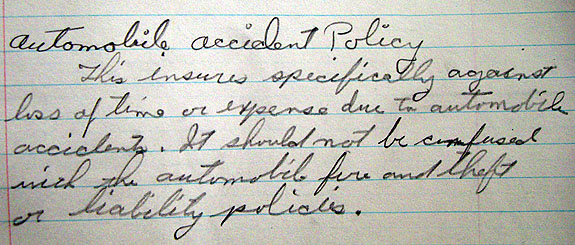 automobile accident Policy
This insures specifically against
loss of time or expense due to automobile
accidents. It should not be confused
with the automobile fire and theft
or liability policies.